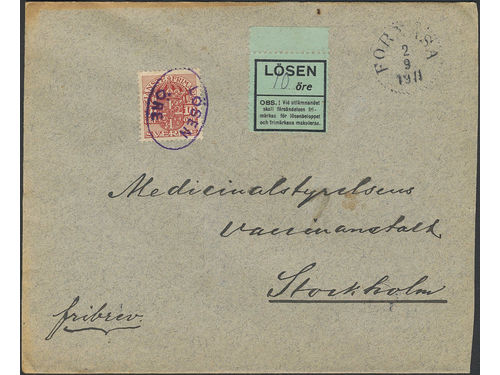 LÖSEN
10 öre
OBS.: Vid utlämnandet
skall försändelsen fri-
märkas för lösenbeloppet
och frimärkena makuleras.
FORSSA
2
9
1911
LÖSEN
ÖRE
Medicinalstyrelsens
Vaccinanstalt
Stockholm
fribrev.